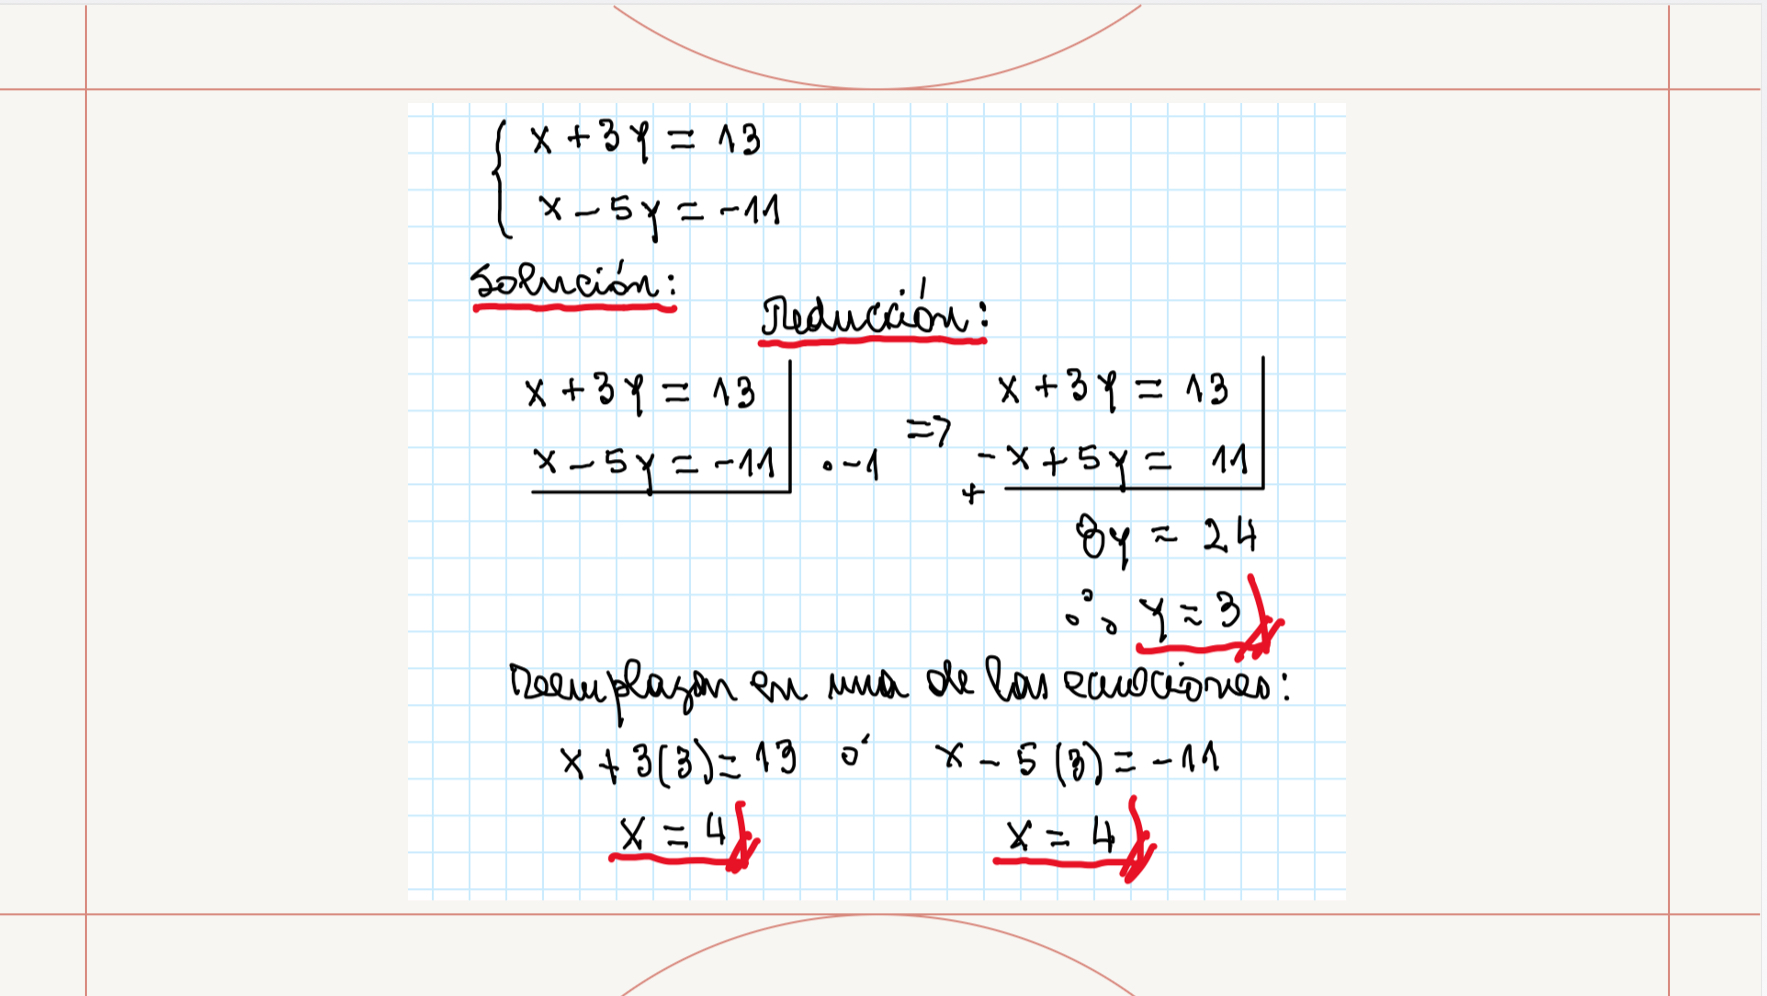 x + 3y = 13
x - 5y = -11
Solución:
Reducción:
x + 3y = 13
x - 5y = -11 · -1
=>
x + 3y = 13
-x + 5y = 11
+
8y = 24
∴ y = 3
Reemplazar en una de las ecuaciones:
x + 3(3) = 13 ó x - 5(3) = -11
x = 4 x = 4